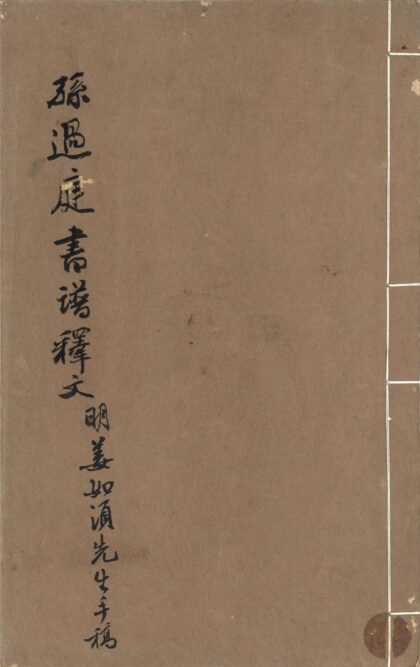 孫過庭書譜釋文
明姜如須先生手稿